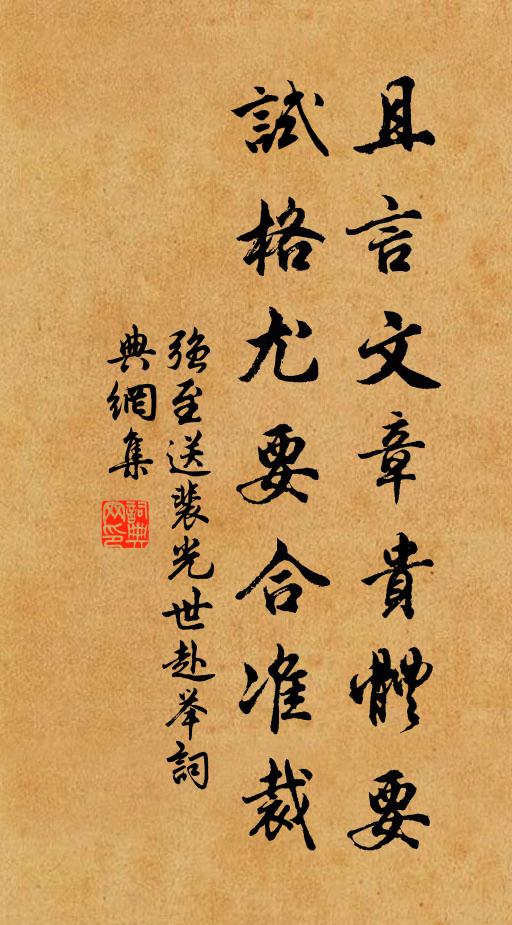 且言文章貴體要
試格尤要合准裁
強至送裴光世赴举詞
典網集
詞典
网印